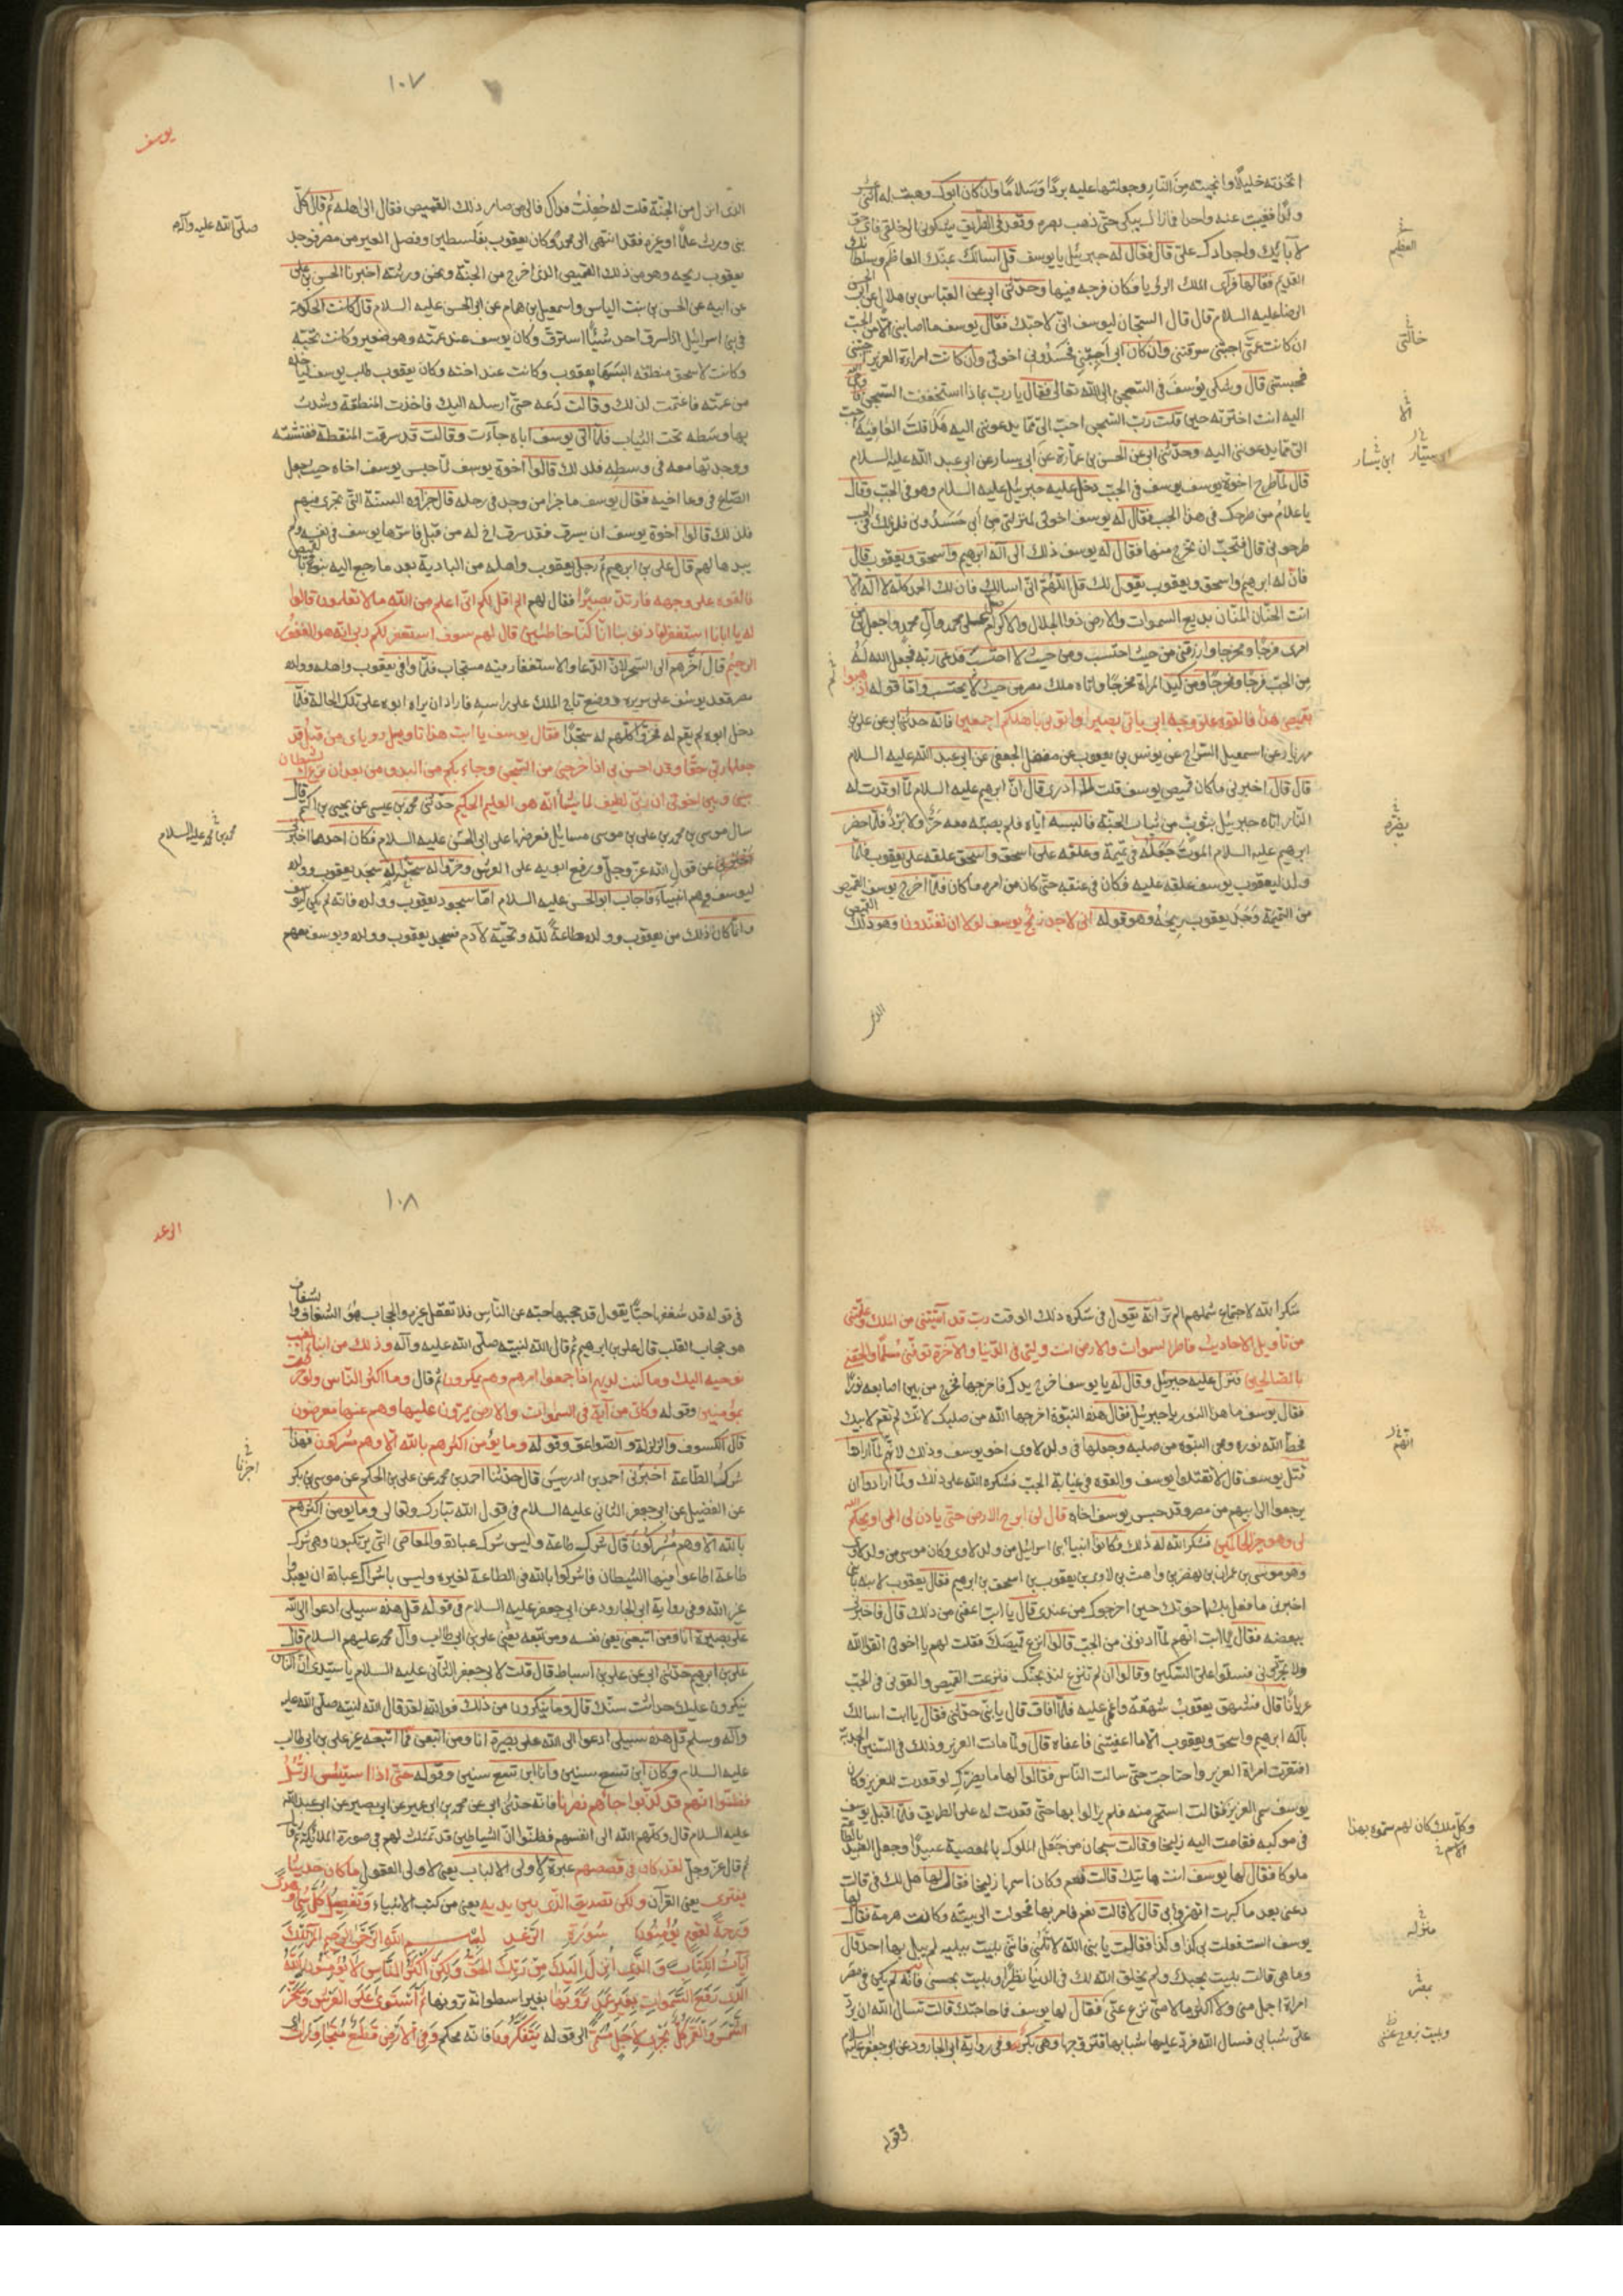 اتخذته خليلا وانجيته من النار وجعلتها عليه بردا وسلاما وان كان ابوك وهبت له اثنى عشر
ولدا فغيبت عنه واحدا فما زال يبكي حتى ذهب بصره وقعد في الطريق يشكوني الى خلقي فاي حق
لآبائك واجدادك علي قال فقال له جبرئيل يا يوسف قل اسالك بمنك العظيم وسلطانك
القديم فقالها فرآى الملك الرؤيا فكان فرجه فيها وحدثني ابي عن العباس بن هلال عن ابي الحسن
الرضا عليه السلام قال قال السجان ليوسف اني لاحبك فقال يوسف ما اصابني الا من الحب
ان كانت عمتي احبتني سرقتني وان كان ابي احبني فحسدوني اخوتي وان كانت امراة العزيز احبتني
فحبستني قال وشكى يوسف في السجن الى الله تعالى فقال يا رب بماذا استحققت السجن فاوحى الله
اليه انت اخترته حين قلت رب السجن احب الي مما يدعونني اليه هلا قلت العافية احب
الي مما يدعونني اليه وحدثني ابي عن الحسن بن عمارة عن ابي سيار عن ابي عبد الله عليه السلام
قال لما طرح اخوة يوسف يوسف في الجب دخل عليه جبرئيل عليه السلام وهو في الجب فقال
يا غلام من طرحك في هذا الجب فقال له يوسف اخوتي لمنزلتي من ابي حسدوني فلذلك في الجب
طرحوني قال فتحب ان تخرج منها فقال له يوسف ذلك الى اله ابرهيم واسحق ويعقوب قال
فان اله ابرهيم واسحق ويعقوب يقول لك قل اللهم اني اسالك فان لك الحمد كله لا اله الا
انت الحنان المنان بديع السموات والارض ذو الجلال والاكرام صل على محمد وآل محمد واجعل لي من
امري فرجا ومخرجا وارزقني من حيث احتسب ومن حيث لا احتسب فدعى ربه فجعل الله له
من الجب فرجا ومخرجا ومن كيد المراة مخرجا واتاه ملك مصر من حيث لا يحتسب واما قوله اذهبوا
بقميصي هذا فالقوه على وجه ابي يات بصيرا واتوني باهلكم اجمعين فانه حدثني ابي عن علي بن
مهزيار عن اسمعيل السراج عن يونس بن يعقوب عن مفضل الجعفي عن ابي عبد الله عليه السلام
قال قال اخبرني ما كان قميص يوسف قلت لا ادري قال ان ابرهيم عليه السلام لما اوقدت له
النار اتاه جبرئيل بثوب من ثياب الجنة فالبسه اياه فلم يصبه معه حر ولا برد فلما حضر
ابرهيم عليه السلام الموت جعله في تميمة وعلقه على اسحق واسحق علقه على يعقوب فلما
ولد ليعقوب يوسف علقه عليه فكان في عنقه حتى كان من امره ما كان فلما اخرج يوسف القميص
من التميمة وجد يعقوب ريحه وهو قوله اني لاجد ريح يوسف لولا ان تفندون وهو ذلك القميص
العظيم
خالتي
الا
ابن يسار
يضره
الذي
١٠٧
يوسف
الذي انزل من الجنة قلت له جعلت فداك فالى من صار ذلك القميص فقال الى اهله ثم قال كل
نبي ورث علما او غيره فقد انتهى الى محمد وكان يعقوب بفلسطين وفصل العير من مصر فوجد
يعقوب ريحه وهو من ذلك القميص الذي اخرج من الجنة ونحن ورثته اخبرنا الحسن بن علي
عن ابيه عن الحسن بن بنت الياس واسمعيل بن همام عن ابي الحسن عليه السلام قال كانت الحكومة
في بني اسرائيل اذا سرق احد شيئا استرق وكان يوسف عند عمته وهو صغير وكانت تحبه
وكانت لاسحق منطقة البسها يعقوب وكانت عند اخته وكان يعقوب طلب يوسف لياخذه
من عمته فاغتمت لذلك وقالت دعه حتى ارسله اليك فاخذت المنطقة وشدت
بها وسطه تحت الثياب فلما اتى يوسف اباه جاءت وقالت قد سرقت المنطقة ففتشته
ووجدتها معه في وسطه فلذلك قالوا اخوة يوسف لما حبس يوسف اخاه حيث جعل
الصاع في وعا اخيه فقال يوسف ما جزا من وجد في رحله قال جزاوه السنة التي تجري فيهم
فلذلك قالوا اخوة يوسف ان يسرق فقد سرق اخ له من قبل فاسرها يوسف في نفسه ولم
يبدها لهم قال علي بن ابرهيم ثم رحل يعقوب واهله من البادية بعد ما رجع اليه بنوه بالقميص
فالقوه على وجهه فارتد بصيرا فقال لهم الم اقل لكم اني اعلم من الله ما لا تعلمون قالوا
له يا ابانا استغفر لنا ذنوبنا انا كنا خاطئين قال لهم سوف استغفر لكم ربي انه هو الغفور
الرحيم قال اخرهم الى السحر لان الدعا والاستغفار فيه مستجاب فلما وافى يعقوب واهله وولده
مصر قعد يوسف على سريره ووضع تاج الملك على راسه فاراد ان يراه ابوه على تلك الحالة فلما
دخل ابوه لم يقم له فخروا كلهم له سجدا فقال يوسف يا ابت هذا تاويل روياي من قبل قد
جعلها ربي حقا وقد احسن بي اذ اخرجني من السجن وجاء بكم من البدو من بعد ان نزغ الشيطان
بيني وبين اخوتي ان ربي لطيف لما يشا انه هو العليم الحكيم حدثني محمد بن عيسى عن يحيى بن اكثم قال
سال موسى بن محمد بن علي بن موسى مسائل فعرضها على ابي الحسن عليه السلام فكان احدها اخبرني
عن قول الله عز وجل ورفع ابويه على العرش وخروا له سجدا سجد يعقوب وولده
ليوسف وهم انبياء فاجاب ابو الحسن عليه السلام اما سجود يعقوب وولده فانه لم يكن ليوسف
وانما كان ذلك من يعقوب وولده طاعة لله وتحية لآدم فسجد يعقوب وولده ويوسف معهم
صلى الله عليه وآله
محمد بن محمد عليه السلام
شكرا لله لاجتماع شملهم الم تر انه يقول في شكره ذلك الوقت رب قد آتيتني من الملك وعلمتني
من تاويل الاحاديث فاطر السموات والارض انت وليي في الدنيا والآخرة توفني مسلما والحقني
بالصالحين فنزل عليه جبرئيل وقال له يا يوسف اخرج يدك فاخرجها فخرج من بين اصابعه نور
فقال يوسف ما هذا النور يا جبرئيل فقال هذه النبوة اخرجها الله من صلبك لانك لم تقم لابيك
فحط الله نوره ومحى النبوة من صلبه وجعلها في ولد لاوى اخو يوسف وذلك لانهم لما ارادوا
قتل يوسف قال لا تقتلوا يوسف والقوه في غيابة الجب فشكره الله على ذلك ولما ارادوا ان
يرجعوا الى ابيهم من مصر وقد حبس يوسف اخاه قال لن ابرح الارض حتى ياذن لي ابي او يحكم الله
لي وهو خير الحاكمين فشكر الله له ذلك وكانوا انبياء بني اسرائيل من ولد لاوى وكان موسى من ولد لاوى
وهو موسى بن عمران بن يهصر بن واهث بن لاوى بن يعقوب بن اسحق بن ابرهيم فقال يعقوب لابنه يا بني
اخبرني ما فعل بك اخوتك حين اخرجوك من عندي قال يا ابت اعفني من ذلك قال فاخبرني
ببعضه فقال يا ابت انهم لما ادنوني من الجب قالوا انزع قميصك فقلت لهم يا اخوتي اتقوا الله
ولا تجردوني فسلوا علي السكين وقالوا ان لم تنزع لنذبحنك فنزعت القميص والقوني في الجب
عريانا قال فشهق يعقوب شهقة واغمي عليه فلما افاق قال يا بني حدثني فقال يا ابت اسالك
باله ابرهيم واسحق ويعقوب الا ما اعفيتني فاعفاه قال ولما مات العزيز وذلك في السنين الجدبة
افتقرت امراة العزيز واحتاجت حتى سالت الناس فقالوا لها ما يضرك لو قعدت للعزيز وكان
يوسف سمي العزيز فقالت استحي منه فلم يزالوا بها حتى قعدت له على الطريق فلما اقبل يوسف
في موكبه فقامت اليه زليخا وقالت سبحان من جعل الملوك بالمعصية عبيدا وجعل العبيد بالطاعة
ملوكا فقال لها يوسف انت هاتيك قالت نعم وكان اسمها زليخا فقال لها هل لك في قالت
دعني بعد ما كبرت اتهزؤ بي قال لا قالت نعم فامر بها فحولت الى بيته وكانت هرمة فقال لها
يوسف الست فعلت بي كذا وكذا فقالت يا نبي الله لا تلمني فاني بليت ببلية لم يبل بها احد قال
وما هي قالت بليت بحبك ولم يخلق الله لك في الدنيا نظيرا وبليت بحسني فانه لم تكن في مصر
امراة اجمل مني ولا اكثر مالا مني نزع عني فقال لها يوسف فما حاجتك قالت تسال الله ان يرد
علي شبابي فسال الله فرد عليها شبابها فتزوجها وهي بكر وفي رواية ابي الجارود عن ابي جعفر عليه السلام
انهم
وكل ملك كان لهم سموه بهذا
الاسم
منزله
بمصر
وبليت بزوج عنين
وقوله
١٠٨
الرعد
في قوله قد شغفها حبا يقول قد حجبها حبه عن الناس فلا تعقل غيره والحجاب هو الشغاف والشغاف
هو حجاب القلب قال علي بن ابرهيم ثم قال الله لنبيه صلى الله عليه وآله وذلك من انباء الغيب
نوحيه اليك وما كنت لديهم اذ اجمعوا امرهم وهم يمكرون ثم قال وما اكثر الناس ولو حرصت
بمؤمنين وقوله وكاين من آية في السموات والارض يمرون عليها وهم عنها معرضون
قال الكسوف والزلزلة والصواعق وقوله وما يؤمن اكثرهم بالله الا وهم مشركون فهذا
شرك الطاعة اخبرني احمد بن ادريس قال حدثنا احمد بن محمد عن علي بن الحكم عن موسى بن بكر
عن الفضيل عن ابي جعفر الثاني عليه السلام في قول الله تبارك وتعالى وما يومن اكثرهم
بالله الا وهم مشركون قال شرك طاعة وليس شرك عبادة والمعاصي التي يرتكبون وهي شرك
طاعة اطاعوا فيها الشيطان فاشركوا بالله في الطاعة لغيره وليس باشراك عبادة ان يعبدوا
غير الله وفي رواية ابي الجارود عن ابي جعفر عليه السلام في قوله قل هذه سبيلي ادعوا الى الله
على بصيرة انا ومن اتبعني يعني نفسه ومن تبعه يعني علي بن ابي طالب وآل محمد عليهم السلام قال
علي بن ابرهيم حدثني ابي عن علي بن اسباط قال قلت لابي جعفر الثاني عليه السلام يا سيدي ان الناس
ينكرون عليك حداثت سنك قال وما ينكرون من ذلك فوالله لقد قال الله لنبيه صلى الله عليه
وآله وسلم قل هذه سبيلي ادعوا الى الله على بصيرة انا ومن اتبعني فما اتبعه غير علي بن ابي طالب
عليه السلام وكان ابن تسع سنين وانا ابن تسع سنين وقوله حتى اذا استيئس الرسل
فظنوا انهم قد كذبوا جاءهم نصرنا فانه حدثني ابي عن محمد بن ابي عمير عن ابي بصير عن ابي عبد الله
عليه السلام قال وكلهم الله الى انفسهم فظنوا ان الشياطين قد تمثلت لهم في صورة الملائكة
ثم قال عز وجل لقد كان في قصصهم عبرة لاولى الالباب يعني لاولى العقول ما كان حديثا
يفترى يعني القرآن ولكن تصديق الذي بين يديه يعني من كتب الانبياء وتفصيل كل شي وهدى
ورحمة لقوم يؤمنون سورة الرعد بسم الله الرحمن الرحيم المر تلك
آيات الكتاب والذي انزل اليك من ربك الحق ولكن اكثر الناس لا يؤمنون الله
الذي رفع السموات بغير عمد ترونها يعني بغير اسطوانة ترونها ثم استوى على العرش وسخر
الشمس والقمر كل يجري لاجل مسمى الى قوله يتفكرون فانه محكم وفي الارض قطع متجاورات
اخبرنا